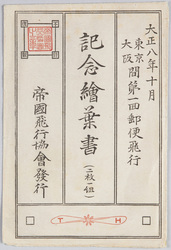 大正八年十月
東京
大阪
間第一回郵便飛行
記念繪葉書
(二枚一組)
帝國飛行協會發行
T H